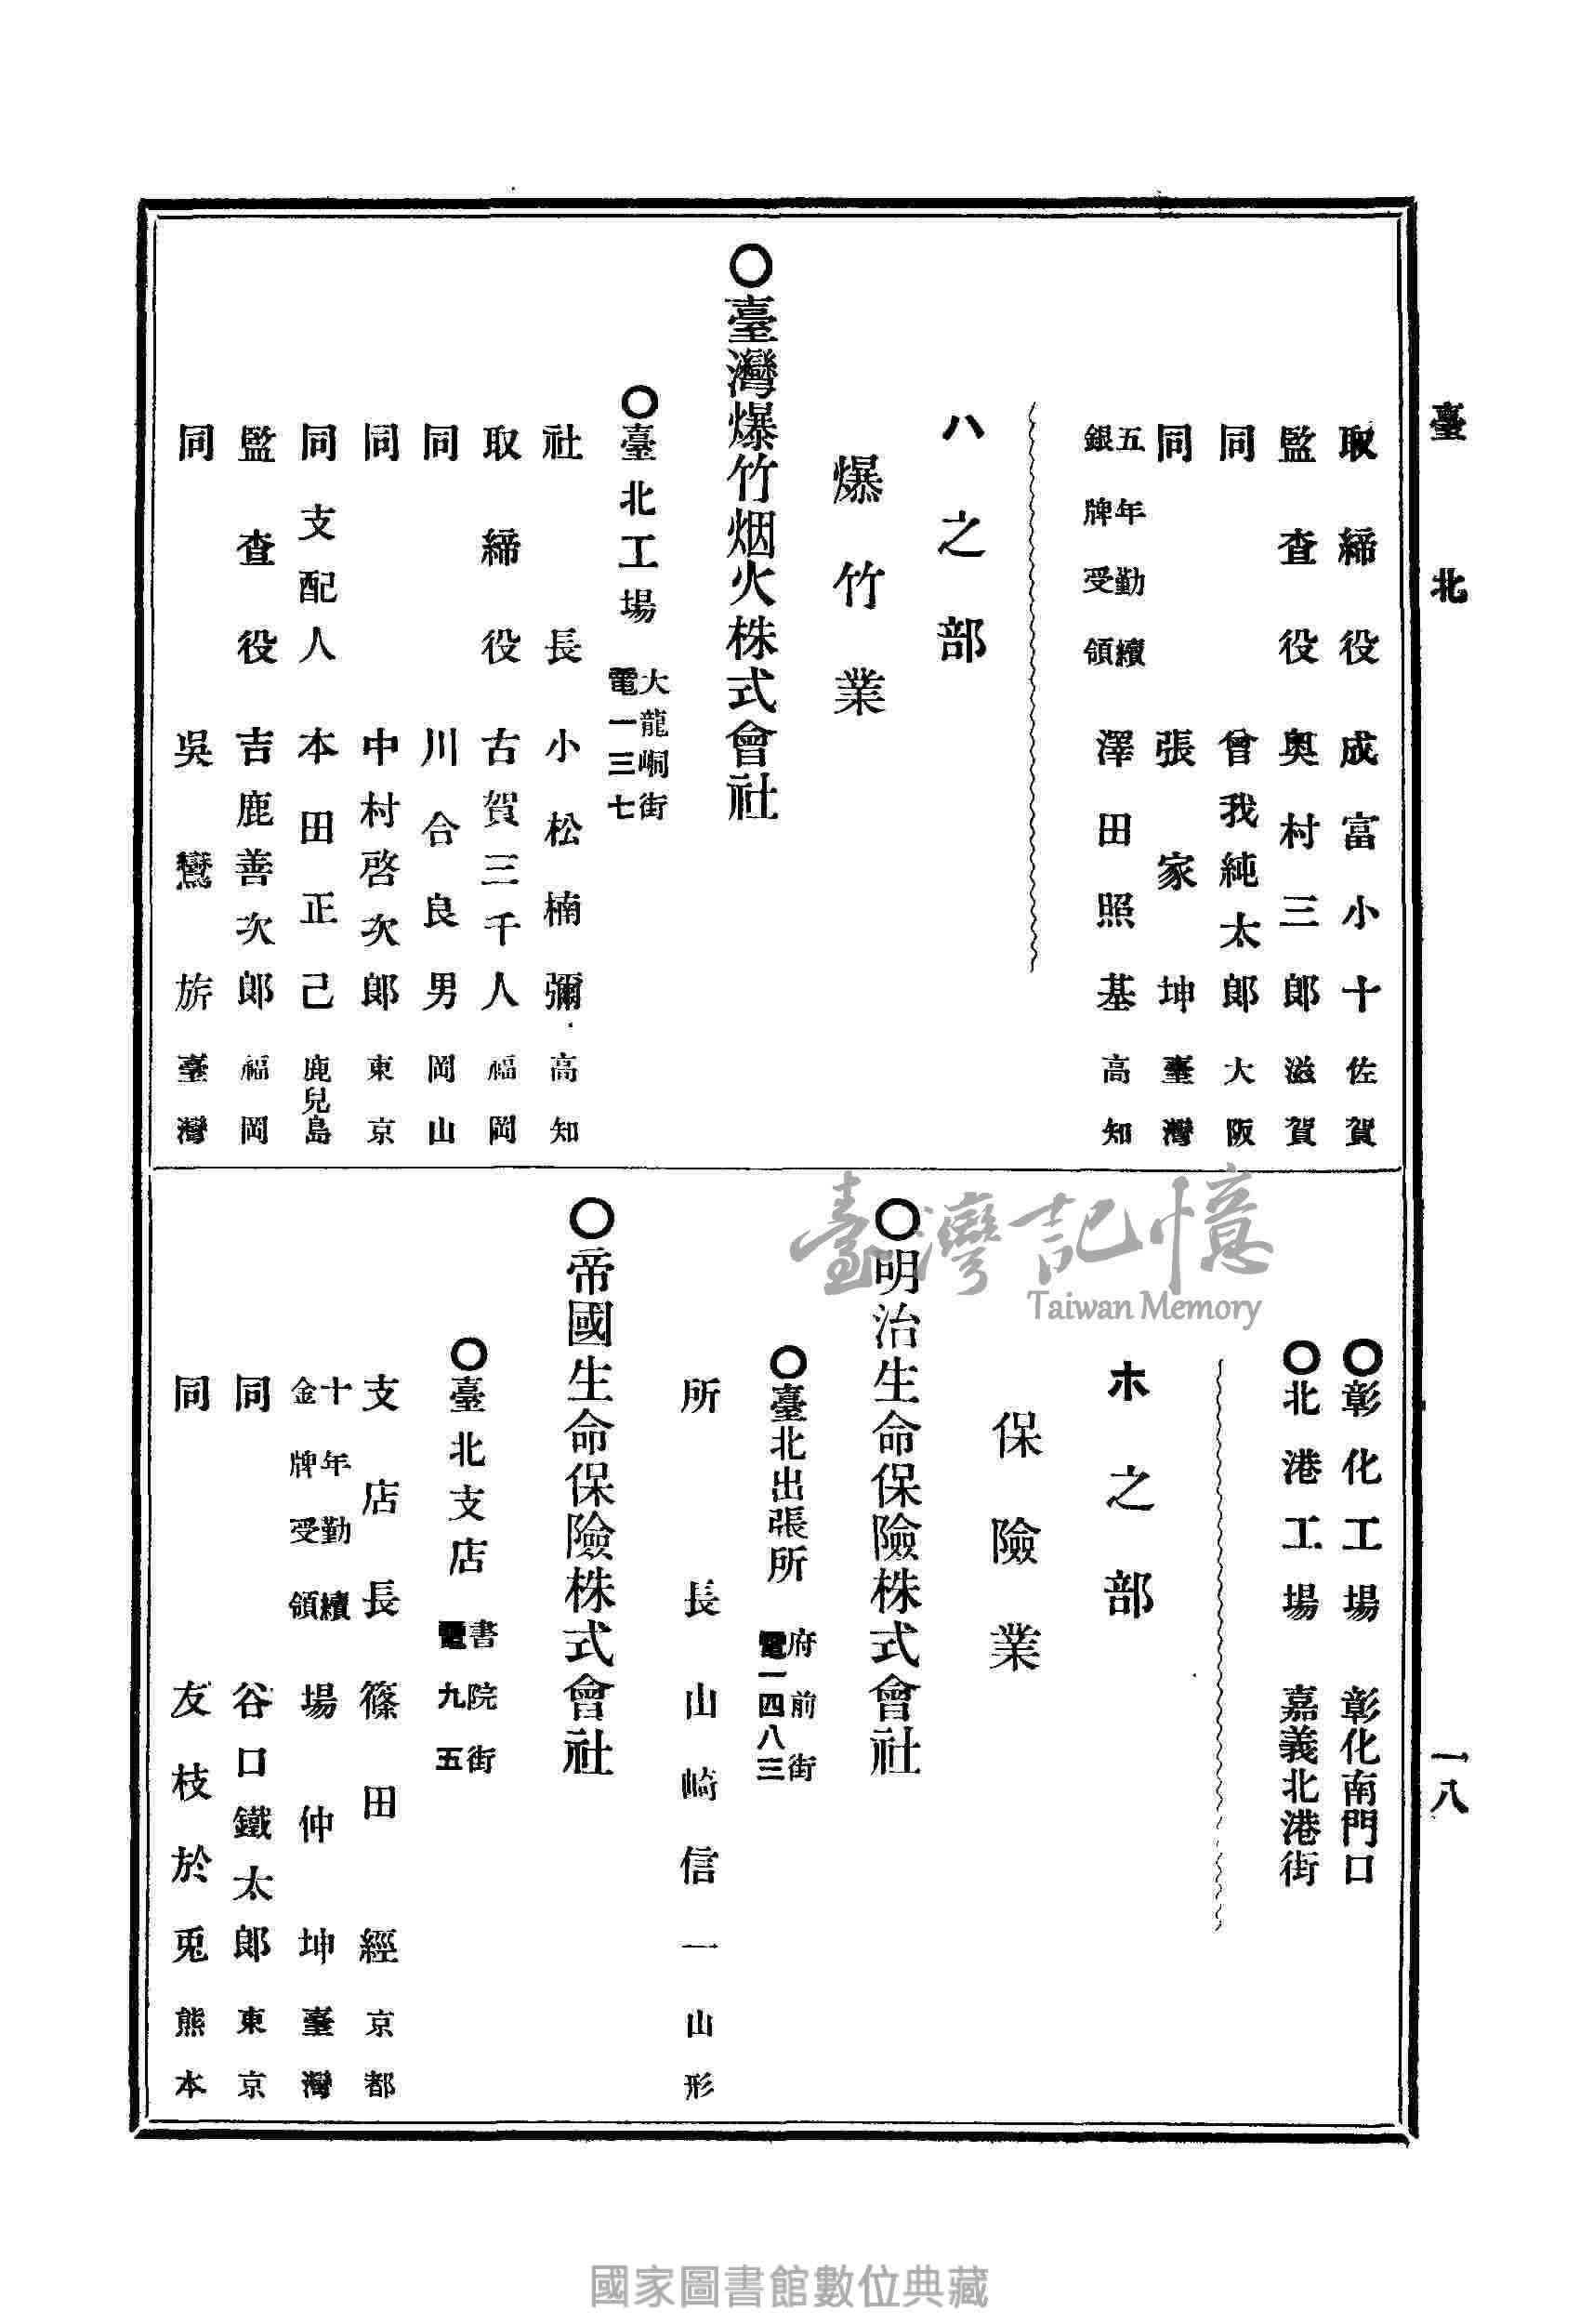 臺北
一八
取締役 成富小十 佐賀
監査役 奥村三郎 滋賀
同 曾我純太郎 大阪
同 張家坤 臺灣
五年勤續
銀牌受領 澤田照基 高知
ハ之部
爆竹業
〇臺灣爆竹烟火株式會社
〇臺北工場 大龍峒街
電一三七
社長 小松楠彌 高知
取締役 古賀三千人 福岡
同 川合良男 岡山
同 中村啓次郎 東京
同支配人 本田正己 鹿兒島
監査役 吉鹿善次郎 福岡
同 吳鸞旂 臺灣
〇彰化工場 彰化南門口
〇北港工場 嘉義北港街
ホ之部
保險業
〇明治生命保險株式會社
〇臺北出張所 府前街
電一四八三
所長 山崎信一 山形
〇帝國生命保險株式會社
〇臺北支店 書院街
電九五
支店長 篠田經 京都
十年勤續
金牌受領 場仲坤 臺灣
同 谷口鐵太郎 東京
同 友枝於兎 熊本
臺灣記憶
Taiwan Memory
國家圖書館數位典藏